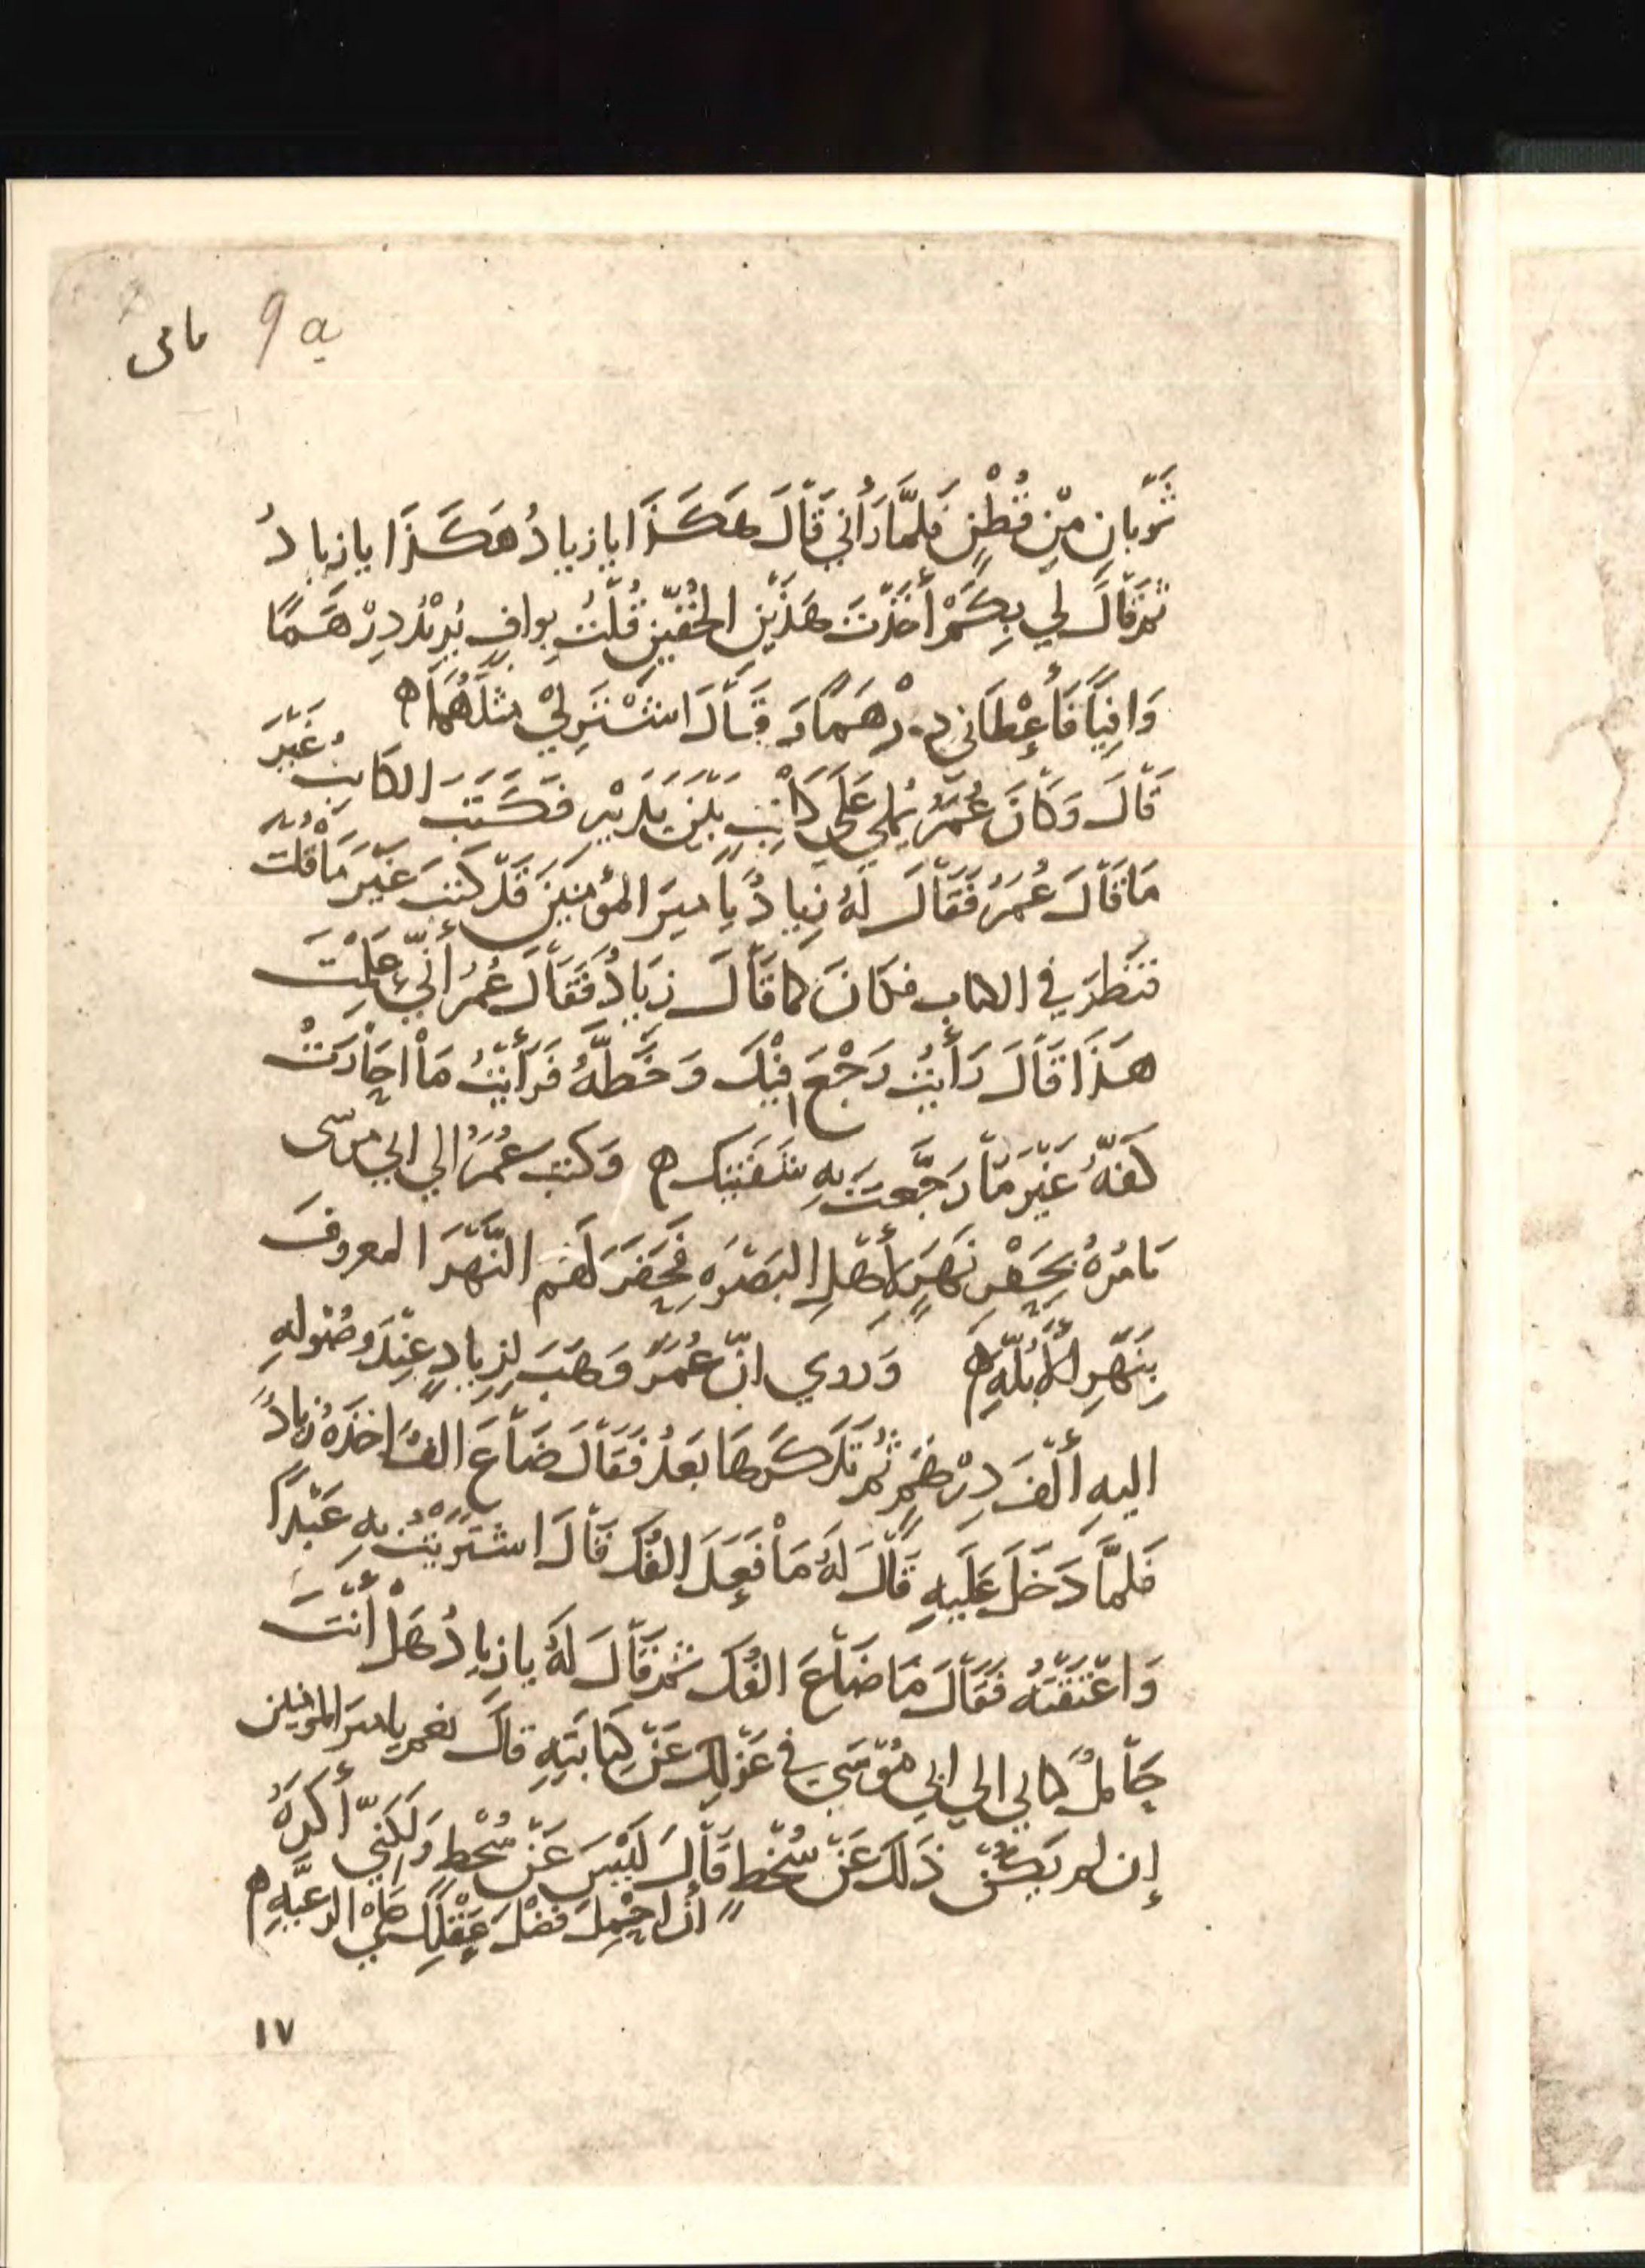 9 a
ثَوْبَانِ مِنْ قُطْنٍ فَلَمَّا رَأَنِي قَالَ هَكَذَا يا زيادُ هَكَذَا يا زيادُ
ثم قَالَ لي بِكَمْ أَخَذْتَ هَذَيْنِ الخُفَّيْنِ قُلْتُ بِوافٍ يُرِيْدُ دِرْهَمًا
وَافِيًا فَأَعْطَانِي دِرْهَمًا وَقَالَ اشْتَرِ لِيْ مِثْلَهُمَا ه
قَالَ وَكَانَ عُمَرُ يُملي عَلَى كَاتِبٍ بَيْنَ يَدَيْهِ فَكَتَبَ الكَاتِبُ غَيْرَ
مَا قَالَ عُمَرُ فَقَالَ لَهُ زِيادٌ يا اميرَ المؤمِنينَ قَدْ كَتَبَ غَيْرَ مَا قُلْتَ
فنَظَرَ في الكتابِ فكَانَ كما قَالَ زِيَادٌ فَقَالَ عُمَرُ أَنَّى عَلِمْتَ
هَذَا قَالَ رَأَيْتُ رَجْعَ فِيْكَ وَخَطَّهُ فَرَأَيْتُ مَا احَارَتْ
كَفُّهُ غَيْرَ مَا رَجَّعتَ بِهِ شَفَتَيْكَ ه وَكتبَ عُمَرُ الي ابي موسى
يَامُرُهُ بِحَفْرِ نَهَرٍ لأَهْلِ البَصْرَهِ فَحَفَرَ لَهُم النَّهَرَ المعروفَ
بِنَهَرِ الأُبُلَّهِ ه وَروي انّ عُمَرَ وَهَبَ لِزِيادٍ عِنْدَ وُصُولِهِ
اليهِ أَلْفَ دِرْهَمٍ ثُمَّ تَذَكَّرَهَا بَعْدُ فَقَالَ ضَاعَ الفٌ اخَذَهُ زيادٌ
فَلمَّا دَخَلَ عَلَيهِ قَالَ لَهُ مَا فَعَلَ الفُكَ قَالَ اشْتَرَيْتُ بِهِ عَبْدًا
وَاعْتَقْتُهُ فَقَالَ مَا ضَاعَ الفُكَ ثم قَالَ لَهُ يا زيادُ هَلْ أَنْتَ
حَامِلٌ كتابي الي ابي مُوْسَي في عَزْلِكَ عَنْ كِتَابَتِهِ قَالَ نعم يا اميرَ المؤمنين
إن لم يَكُنْ ذَلكَ عَنْ سُخْطٍ قَالَ لَيْسَ عَنْ سُخْطٍ وَلَكِنِّي أَكْرَهُ
أَنْ احْمِلَ فَضْلَ عَقْلِكَ عَلى الرعيَّهِ ه
١٧